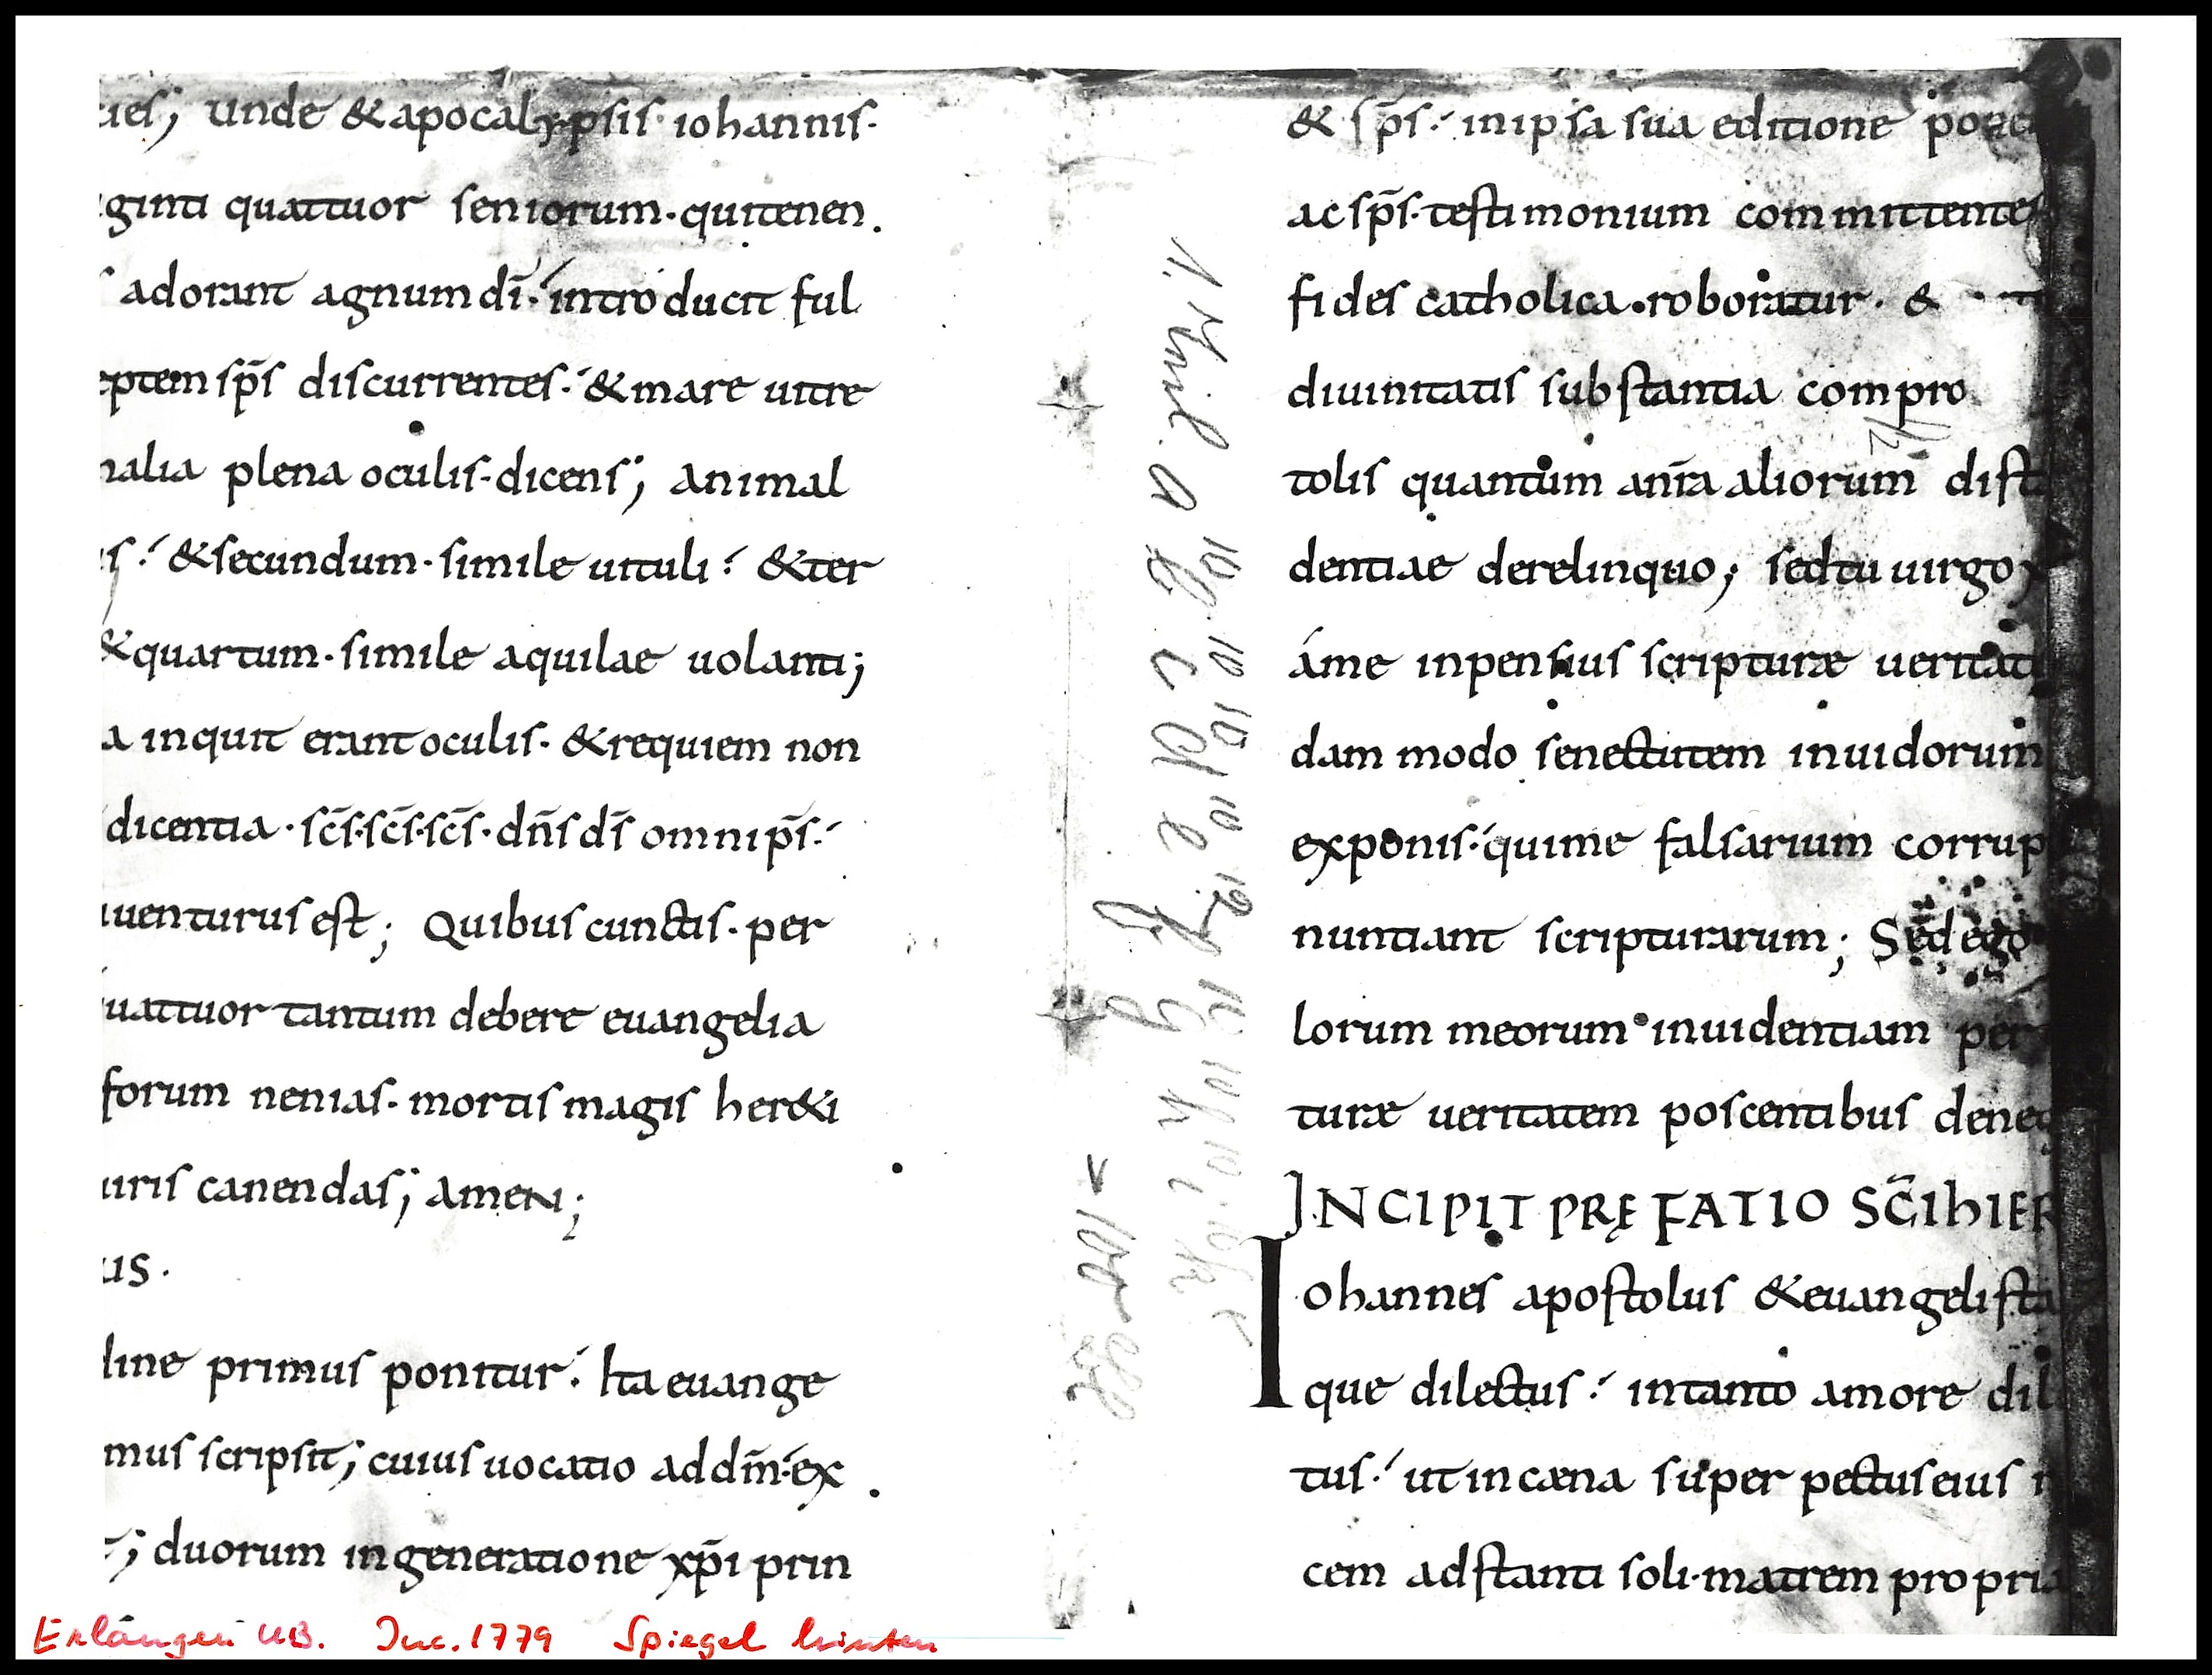 ues; unde & apocalypsis· iohannis·
ginti quattuor seniorum· qui tenen
adorant agnum dī· introducit ful
eptem sp̄s discurrentes· & mare uitre
nalia plena oculis· dicens; animal
s· & secundum· simile uituli· & ter
& quartum· simile aquilae uolanti;
a inquit erant oculis· & requiem non
dicentia· sc̄s· sc̄s· sc̄s· dn̄s ds̄ omnip̄s·
uenturus est; Quibus cunctis· per
uattuor tantum debere euangelia
forum nenias· mortis magis her&i
uiris canendas; amen;
us·
line primus ponitur· Ita euange
mus scripsit; cuius uocatio ad dm̄· ex
; duorum in generatione xp̄i prin
& sp̄s· in ipsa sua editione
ac sp̄s· testimonium committentes
fides catholica· roboratur· &
diuinitatis substantia compro
tolis quantum anr̄a aliorum dist
dentiae derelinquo; sed tu uirgo
á me inpensius scripturæ ueritat
dam modo senectutem inuidorum
exponis· qui me falsarium corrup
nuntiant scripturarum; Sed ego
lorum meorum inuidentiam per
turæ ueritatem poscentibus deneg
INCIPIT PRĘFATIO SC̄I hIER
Iohannes apostolus & euangelista
que dilectus· in tanto amore dil
tus· ut in cæna super pectus eius
cem adstanti soli· matrem propria
Erlangen UB. Inc. 1779 Spiegel hinten